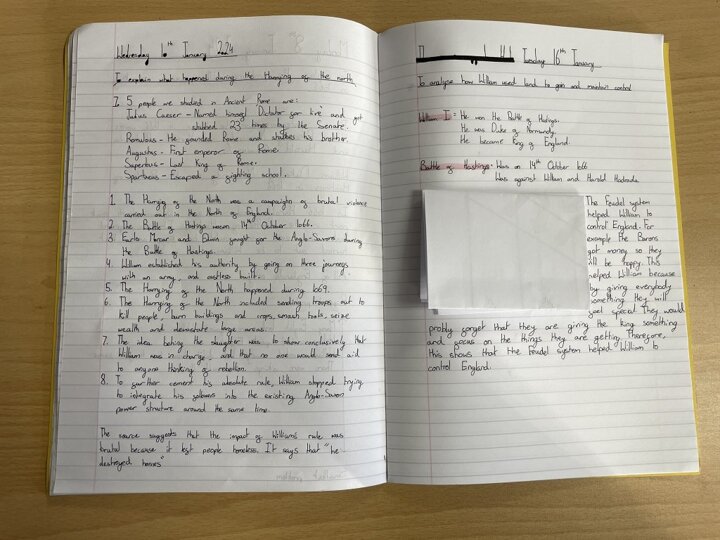 Wednesday 10th January 2024
To explain what happened during the Harrying of the north
5 people we studied in Ancient Rome are:
Julius Caeser - Named himself 'Dictator for life' and got
stabbed 23 times by the Senate.
Romulous - He founded Rome and his brother.
Augustus - First emperor of Rome
Superbus - Last King of Rome.
Spartacus - Escaped a fighting school.
1. The Harrying of the North was a campaign of brutal violence
carried out in the North of England.
2. The Battle of Hastings 14th October 1066.
3. Earls Morcar and Edwin fought for the Anglo-Saxons during
the Battle of Hastings.
4. William established his authority by going on three journeys
with an army, and castles built.
5. The Harrying of the North happened during 1069.
6. The Harrying of the North included sending troops out to
kill people, burn buildings and crops, smash tools, seize
wealth and devastate large areas.
7. The idea behing the slaughter was to show conclusively that
William was in charge, and that no one would send aid
to anyone thinking of rebellion.
8. To further cement his absolute rule, William stopped trying
to integrate his followers into the existing Anglo-Saxon
power structure around the same time.
The source suggests that the impact of William's rule was
brutal because it left people homeless. It says that "he
destroyed homes"
Tuesday 16th January
To analyse how William used land to gain and maintain control
William I: He won the Battle of Hastings.
He was Duke of Normandy.
He became King of England.
Battle of Hastings: Was on 14th October 1066
Was against William and Harold Hadrada
The Feudel system
helped William to
control England. For
example the Barons
got money so they
will be happy. This
helped William because
by giving everybody
something they will
feel special. They would
probly forget that they are giving the king something
and focus on the things they are getting. Therefore,
this shows that the Feudel system helped William to
control England.